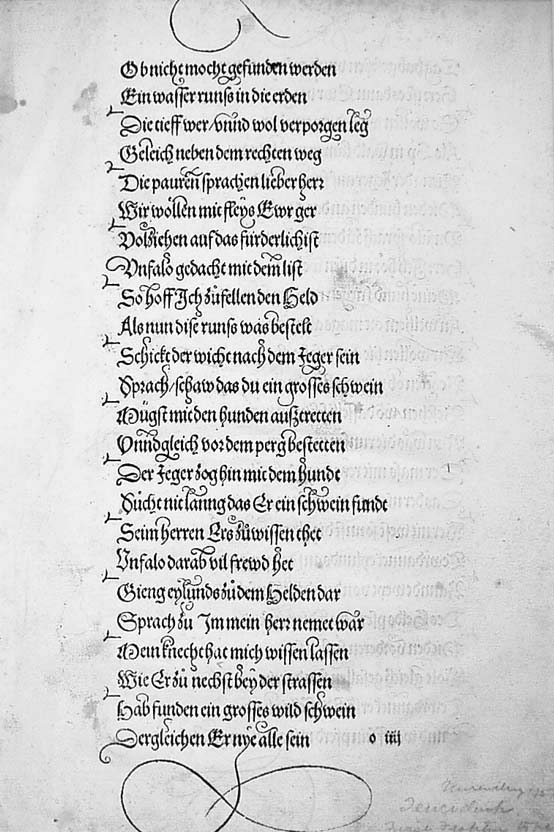 Ob nicht mocht gefunden werden
Ein wasser runſs in die erden
Die tieff wer/vnnd wol verporgen leg
Geleich neben dem rechten weg
Die pauren ſprachen lieber herr
Wir wöllen mit fleys Ewr ger
Volziehen auf das fürderlichiſt
Vnfalo gedacht mit dem liſt
So hoff Ich zů fellen den Held
Als nun diſe runſs was beſtelt
Schickt der wicht nach dem Jeger ſein
Sprach/ſchaw das du ein groſſes ſchwein
Mügſt mit den hunden auſztretten
Vnnd gleich vor dem perg beſtetten
Der Jeger zog hin mit dem hundt
Sücht nit lanng das Er ein ſchwein fundt
Seim herren Ers zů wiſſen thet
Vnfalo darab vil frewd het
Gieng eylunds zů dem Helden dar
Sprach zů Im mein herr nemet war
Mein knecht hat mich wiſſen laſſen
Wie Er zů nechſt bey der ſtraſſen
Hab funden ein groſſes wild ſchwein
Dergleichen Er nye alle ſein o iiij